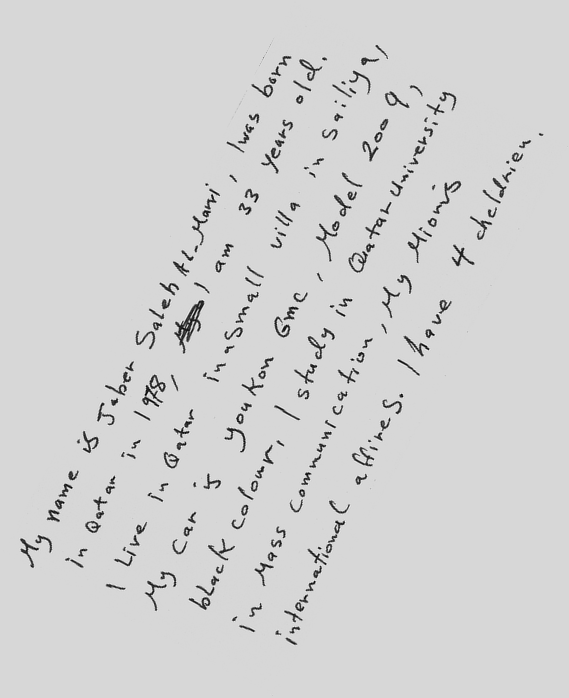 My name is Jaber Saleh Al-Marri, I was born
in Qatar in 1978, I am 33 years old.
I Live in Qatar in a small villa in Sailiya,
My car is youkon Gmc, Model 2009,
black colour, I study in Qatar University
in Mass communication, My Mionis
international affires. I have 4 cheldrien.